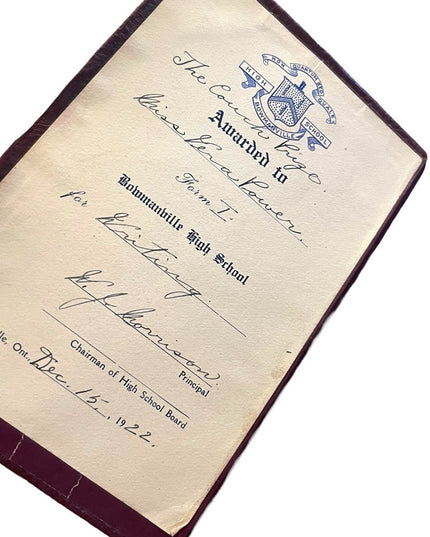 NON QUANTUM SED QUALE
HIGH SCHOOL
BOWMANVILLE
The Couch Prize.
Awarded to
Miss Vera Power.
Form I.
Bowmanville High School
for Writing.
W J Morrison.
Principal
Chairman of High School Board
lle, Ont., Dec. 15, 1922.